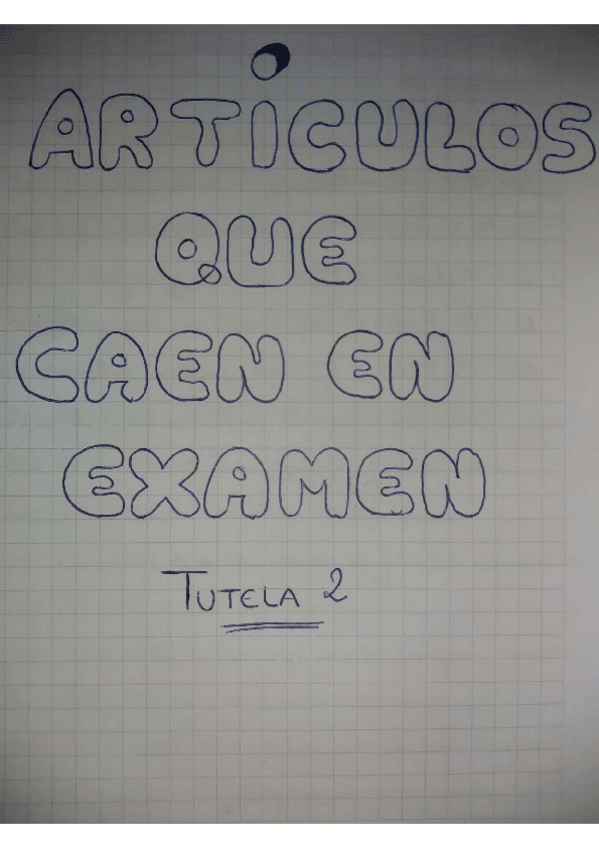 ARTÍCULOS
QUE
CAEN EN
EXAMEN
TUTELA 2